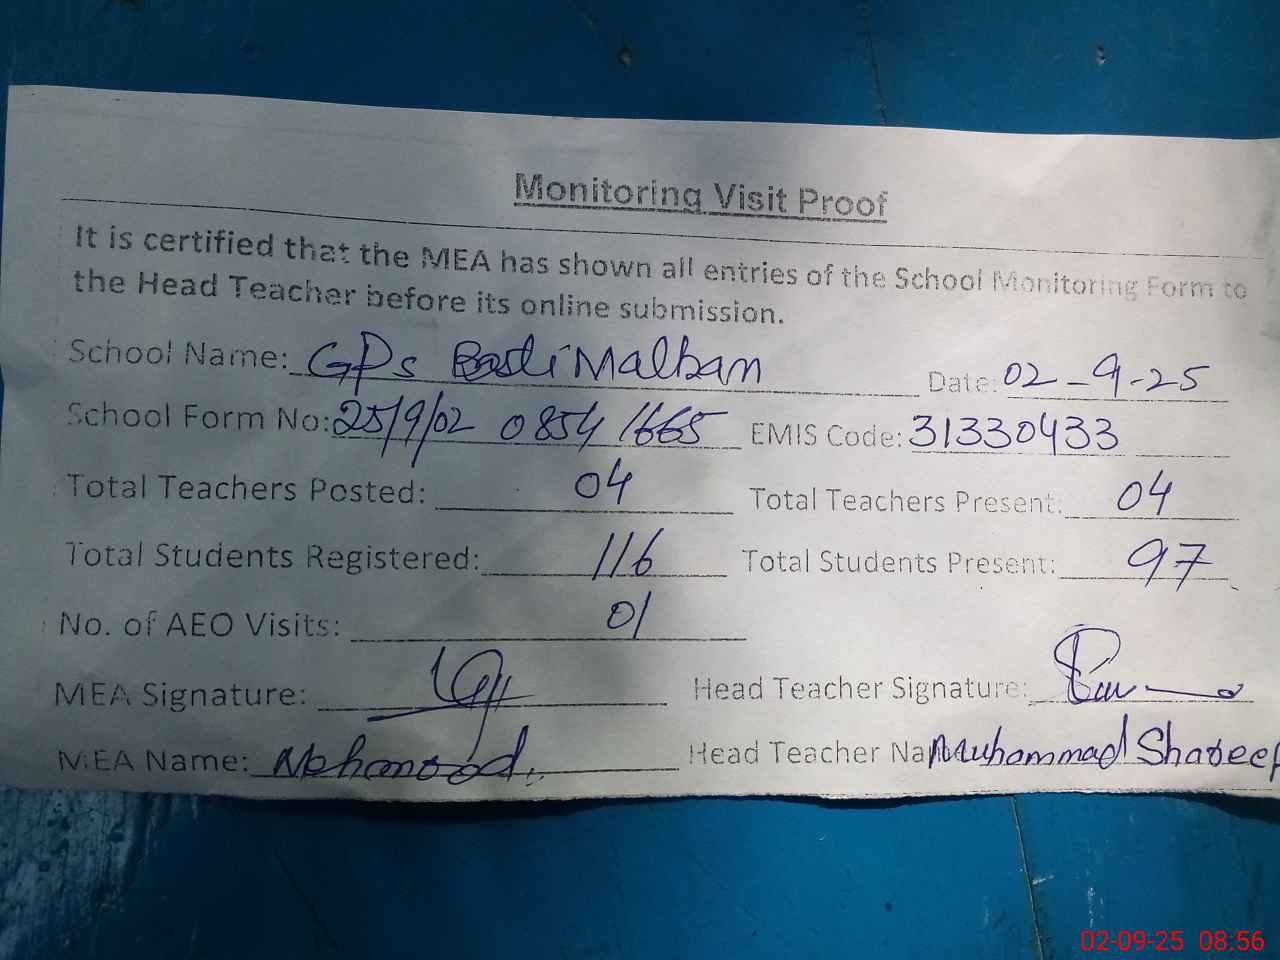 Monitoring Visit Proof
It is certified that the MEA has shown all entries of the School Monitoring Form to
the Head Teacher before its online submission.
School Name: GPS Basti Malban Date: 02-9-25
School Form No: 25/9/02 0854 1665 EMIS Code: 31330433
Total Teachers Posted: 04 Total Teachers Present: 04
Total Students Registered: 116 Total Students Present: 97
No. of AEO Visits: 01
MEA Signature: Head Teacher Signature:
MEA Name: Mehmood Head Teacher Na Muhammad Shareef
02-09-25 08:56